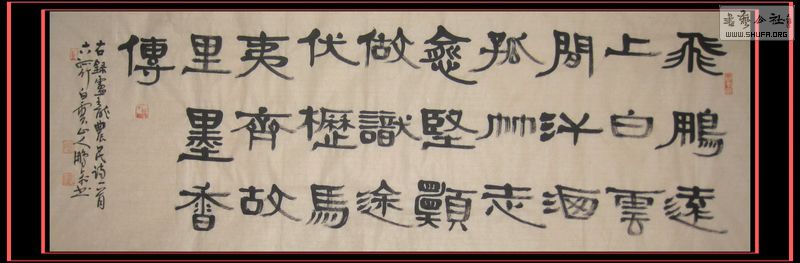 飛鵬遠
上白雲
間汗海
孤竹志
愈堅願
做識途
伏櫪馬
夷齊故
里墨香
傳
右錄盧龍農民詩一首
白雲山人鵬書
书艺公社
WWW.SHUFA.ORG